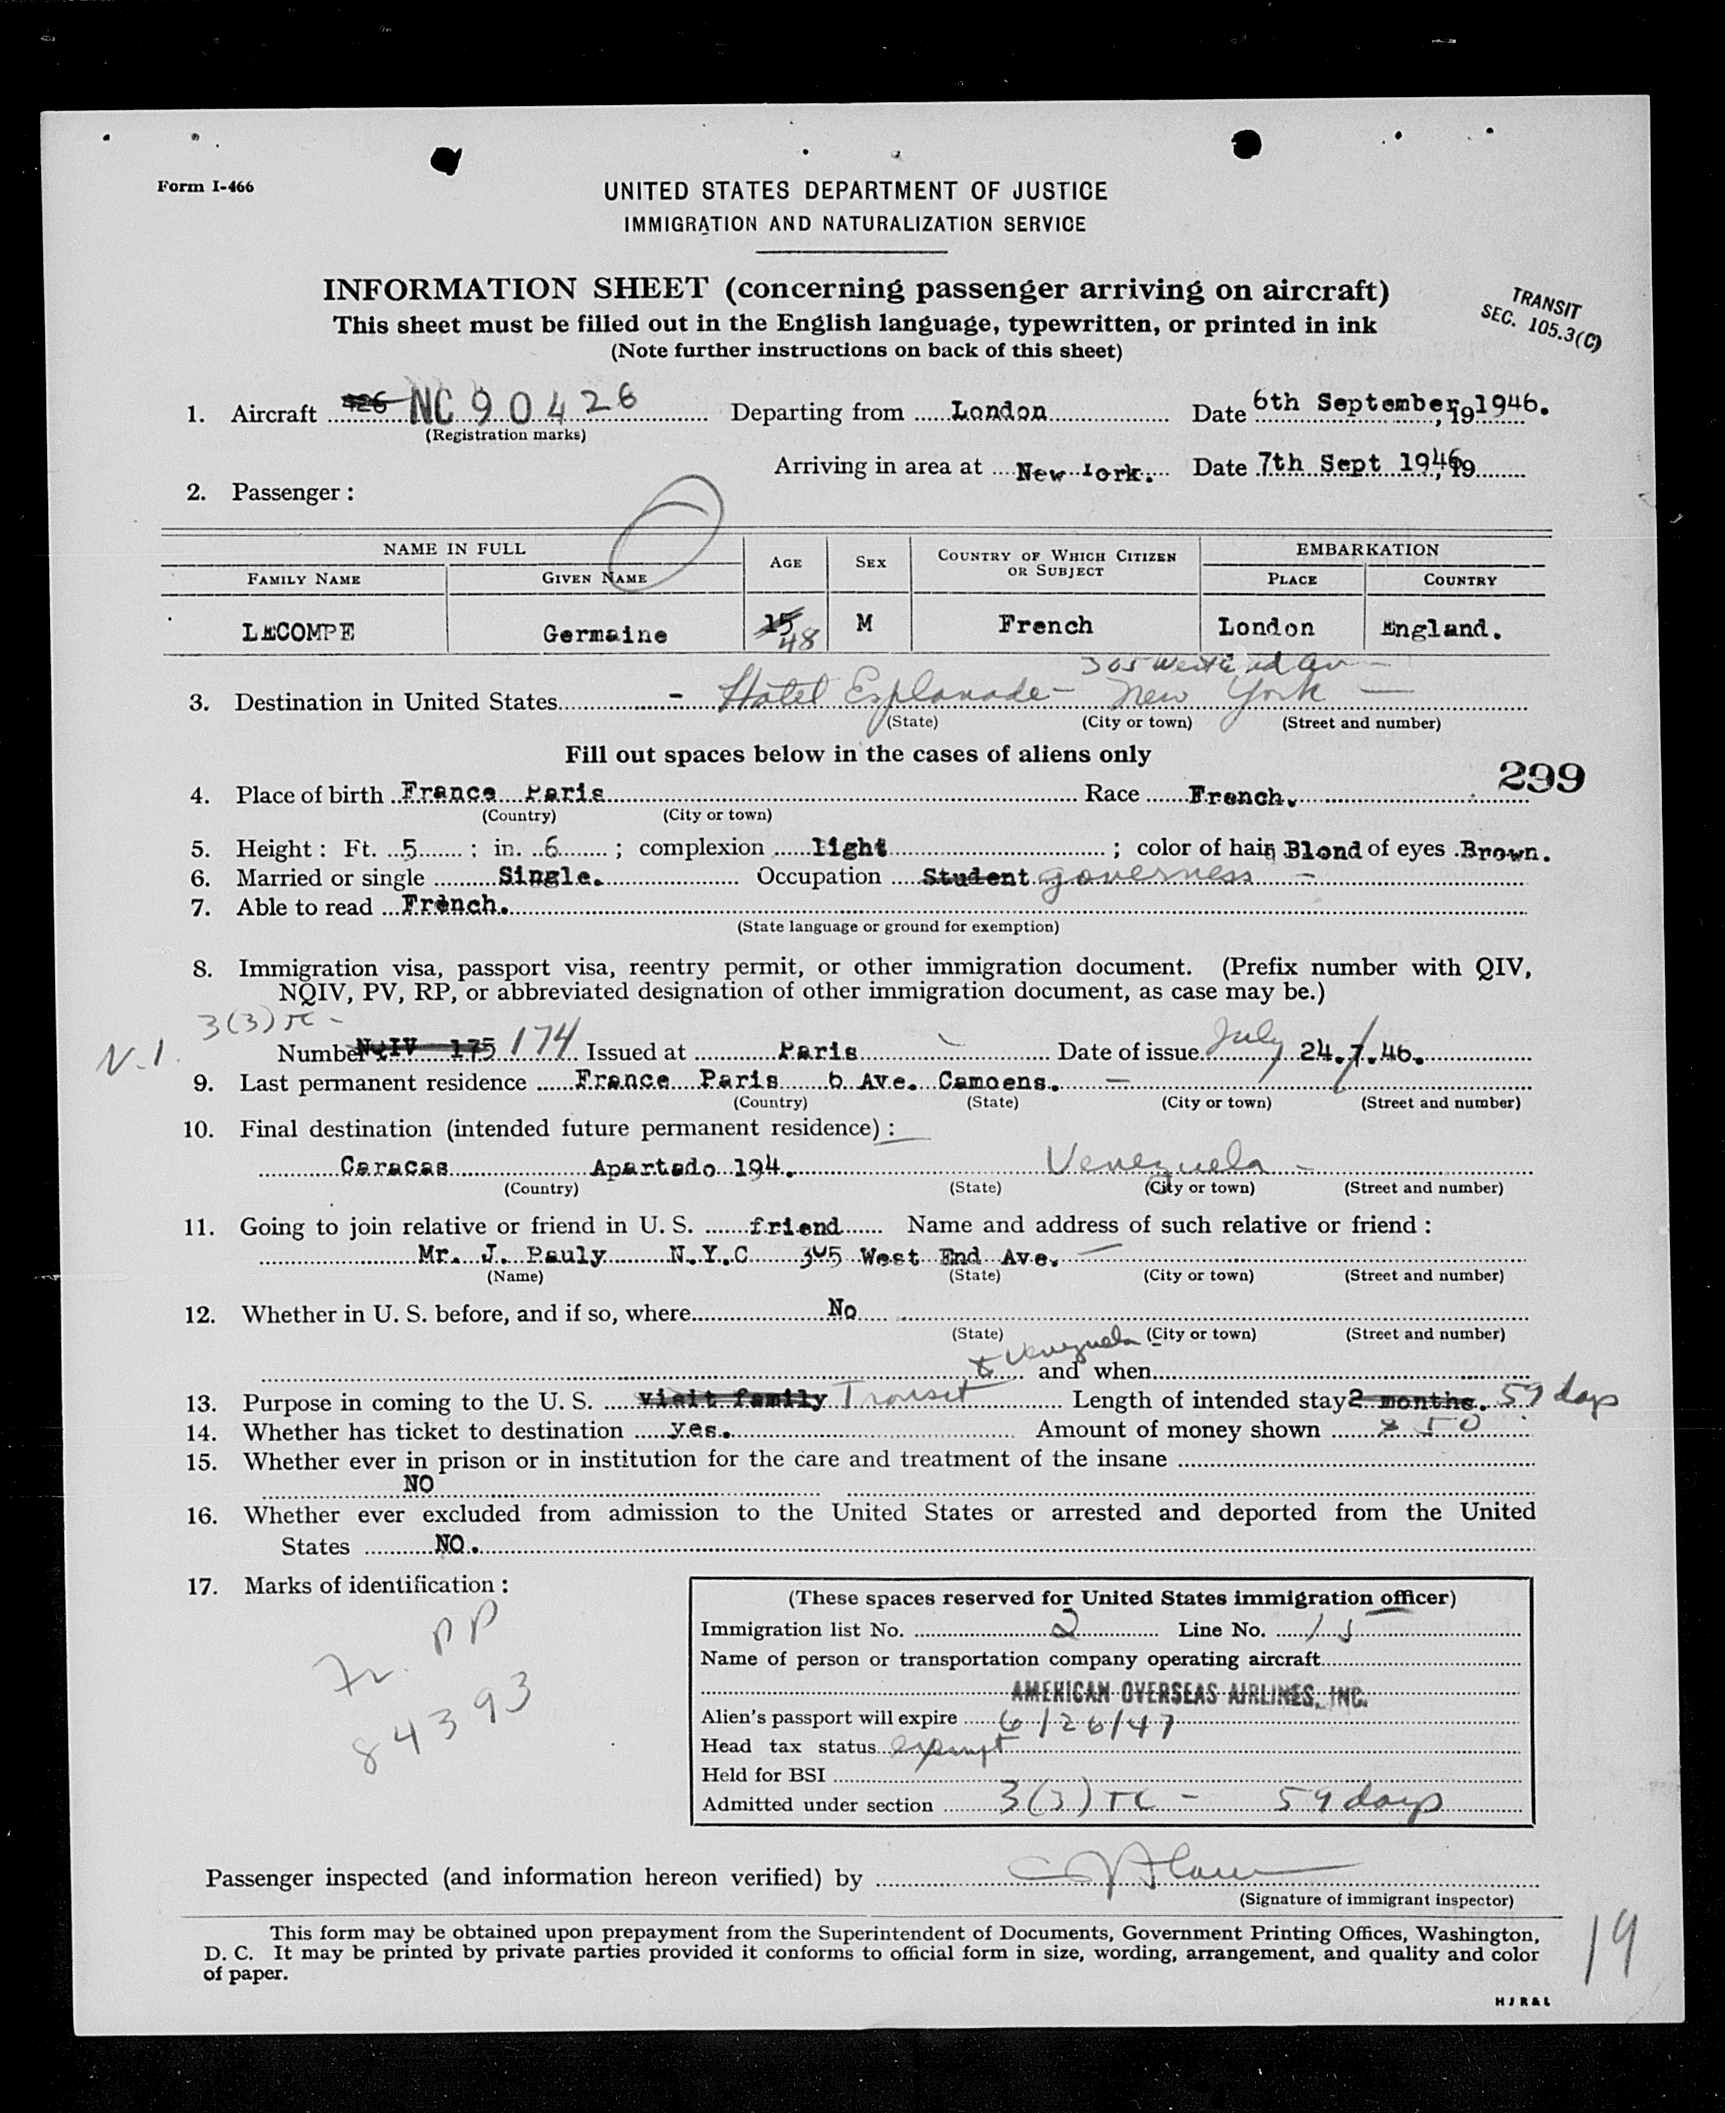 Form I-466
UNITED STATES DEPARTMENT OF JUSTICE
IMMIGRATION AND NATURALIZATION SERVICE
INFORMATION SHEET (concerning passenger arriving on aircraft)
This sheet must be filled out in the English language, typewritten, or printed in ink
(Note further instructions on back of this sheet)
TRANSIT
SEC. 105.3(C)
1. Aircraft 426 NC90426 Departing from London Date 6th September, 191946.
(Registration marks)
Arriving in area at New York. Date 7th Sept 1946, 19
2. Passenger :
NAME IN FULL AGE SEX COUNTRY OF WHICH CITIZEN OR SUBJECT EMBARKATION
FAMILY NAME GIVEN NAME PLACE COUNTRY
LECOMPE Germaine 15 48 M French London England.
365 West End Av
3. Destination in United States - Hotel Esplanade - New York -
(State) (City or town) (Street and number)
Fill out spaces below in the cases of aliens only
299
4. Place of birth France Paris Race French.
(Country) (City or town)
5. Height : Ft. 5 ; in. 6 ; complexion light ; color of hair Blond of eyes Brown.
6. Married or single Single. Occupation Student governess -
7. Able to read French.
(State language or ground for exemption)
8. Immigration visa, passport visa, reentry permit, or other immigration document. (Prefix number with QIV,
NQIV, PV, RP, or abbreviated designation of other immigration document, as case may be.)
3(3) TC -
N.I. Number NQIV 175 174 Issued at Paris Date of issue July 24.7.46.
9. Last permanent residence France Paris 6 Ave. Camoens. -
(Country) (State) (City or town) (Street and number)
10. Final destination (intended future permanent residence) :
Caracas Apartado 194. Venezuela -
(Country) (State) (City or town) (Street and number)
11. Going to join relative or friend in U. S. friend Name and address of such relative or friend :
Mr. J. Pauly N.Y.C 305 West End Ave. -
(Name) (State) (City or town) (Street and number)
12. Whether in U. S. before, and if so, where No
(State) (City or town) (Street and number)
to Venezuela and when
13. Purpose in coming to the U. S. visit family Transit Length of intended stay 2 months. 59 days
14. Whether has ticket to destination yes. Amount of money shown $ 50
15. Whether ever in prison or in institution for the care and treatment of the insane
NO
16. Whether ever excluded from admission to the United States or arrested and deported from the United
States NO.
17. Marks of identification :
Fr. PP
84393
(These spaces reserved for United States immigration officer)
Immigration list No. 2 Line No. 15
Name of person or transportation company operating aircraft
AMERICAN OVERSEAS AIRLINES, INC.
Alien's passport will expire 6/26/47
Head tax status exempt
Held for BSI
Admitted under section 3(3) TC - 59 days
Passenger inspected (and information hereon verified) by
(Signature of immigrant inspector)
This form may be obtained upon prepayment from the Superintendent of Documents, Government Printing Offices, Washington,
D. C. It may be printed by private parties provided it conforms to official form in size, wording, arrangement, and quality and color
of paper.
19
H J R & L